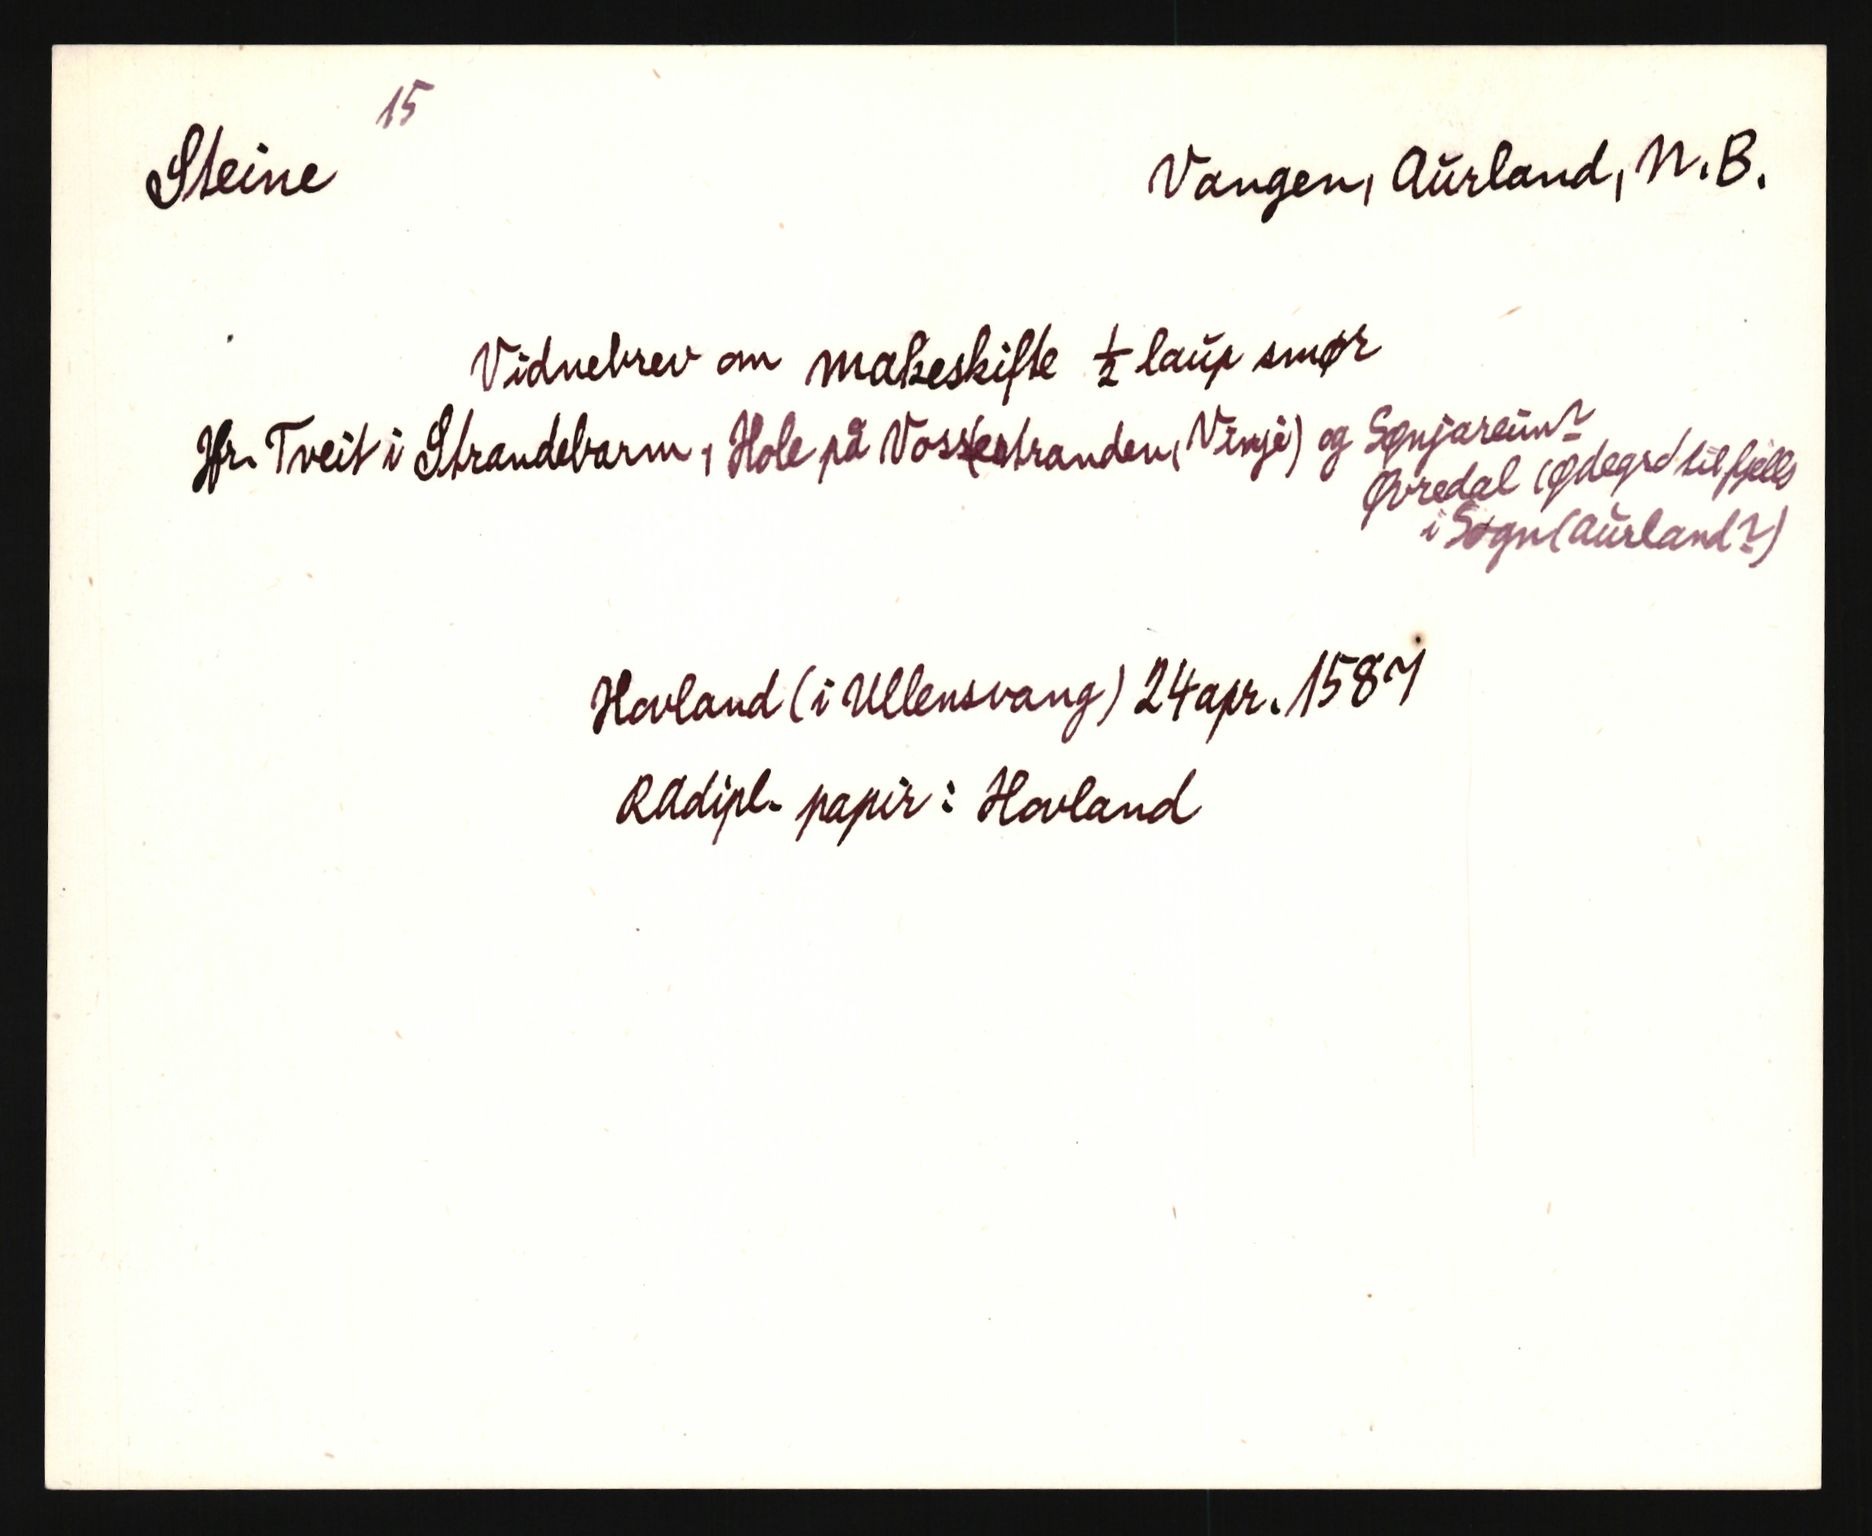 15
Steine
Vangen, Aurland, N.B.
Vidnebrev om makeskifte ½ laup smør
Jfr. Tveit i Strandebarm, Hole på Vossestranden, Vinje) og Sønjareim?
Øvredal (Ødegrd til fjells
i Sogn (Aurland?)
Hovland (i Ullensvang) 24 apr. 1587
RAdipl. papir: Hovland